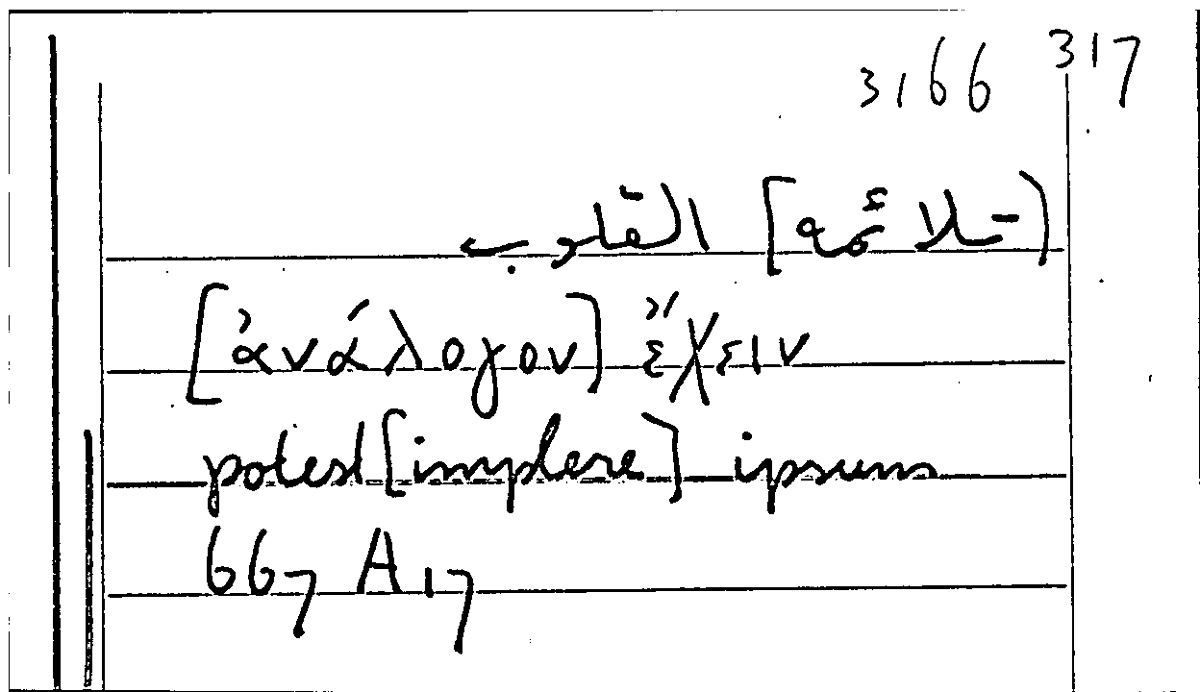 3166 317
(تلائمه] القلوب
[ἀνάλογον] ἔχειν
potest [implere] ipsum
667 A 17